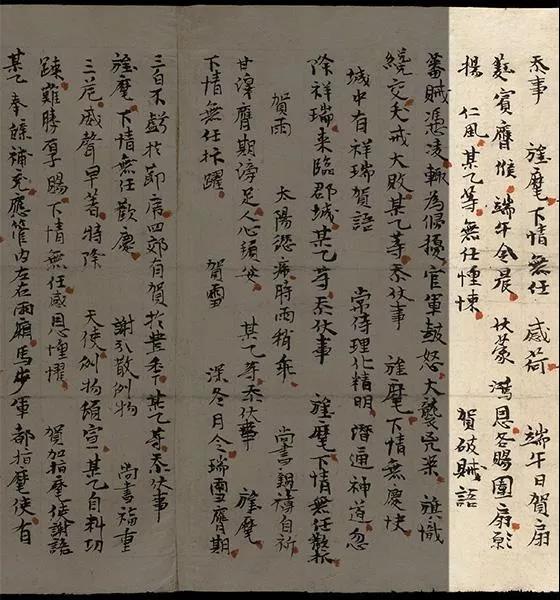 忝事 旌麾下情無任 感荷 端午日賀扇
蕤賓膺候端午令晨 伏蒙 鴻恩各賜團扇願
揚 仁風某乙等無任惶悚 賀破賊語
蕃賊憑凌輒為侵擾官軍鼓怒大襲兇渠旌識
繞交大敗某乙等忝伏事 旌麾下情無慶快
城中有祥瑞賀語 常侍理化精明潛通神道忽
除祥瑞來臨郡城某乙等忝伏事 旌麾下情無任歡抃
賀雨 太陽愆席時雨稍乖 尚書親禱自祈
甘澤膺期滂足人心頓安 某乙等忝伏事 旌麾
下情無任抃躍 賀雪 深冬月令瑞雪膺期
三白不虧於節席四郊有賀於豊年某乙等忝伏事
旌麾下情無任歡慶 謝打散例物 尚書福重
三危威聲早著特降 天使例物頒宣某乙自料功
踈難勝厚賜下情無任感恩惶懼 賀加指麾使謝語
某乙奉牒補充應管內左右兩廂馬步軍都指麾使有